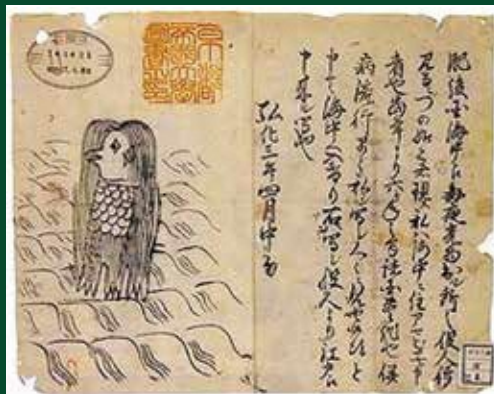 肥後国海中え毎夜光物出ル所之役人行
見るニづの如く者現ス私ハ海中ニ住アマビヱト申
者也當年より六ヶ年之間諸国豊作也併
病流行早々私ヲ写シ人々ニ見せ候得と
申て海中へ入けり右ハ写シ役人より江戸え
申来ル写也
弘化三年四月中旬